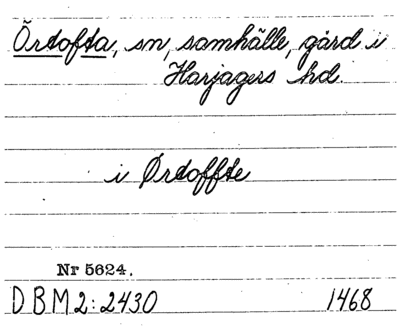 Örtofta, sn, samhälle, gård i
Harjagers hd.
i Ørtoffte
Nr 5624.
DBM 2:2430 1468